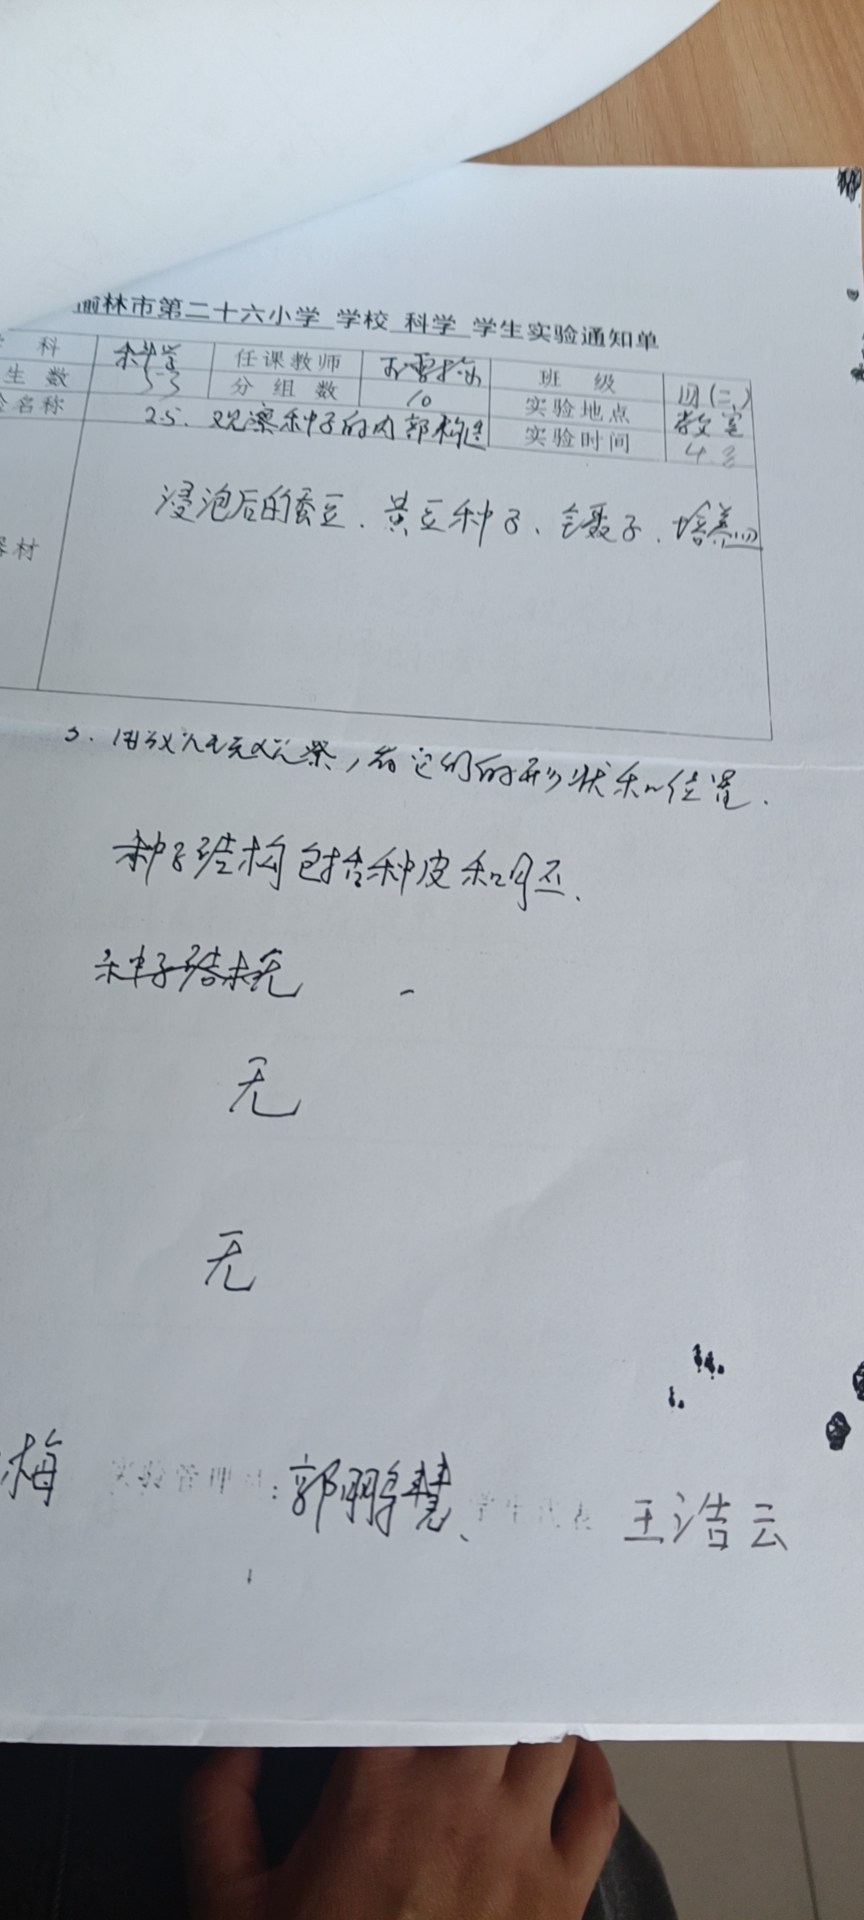 榆林市第二十六小学 学校 科学 学生实验通知单
科 科学 任课教师 班 级 四(二)
生 数 53 分 组 数 10 实验地点 教室
名称 25. 观察种子的内部构造 实验时间 4.
器材 浸泡后的蚕豆、黄豆种子、镊子、培养皿
3. 用放大镜观察,看它们的形状和位置.
种子结构包括种皮和胚.
无
无
无
梅 : 郭鹏慧、 王浩云